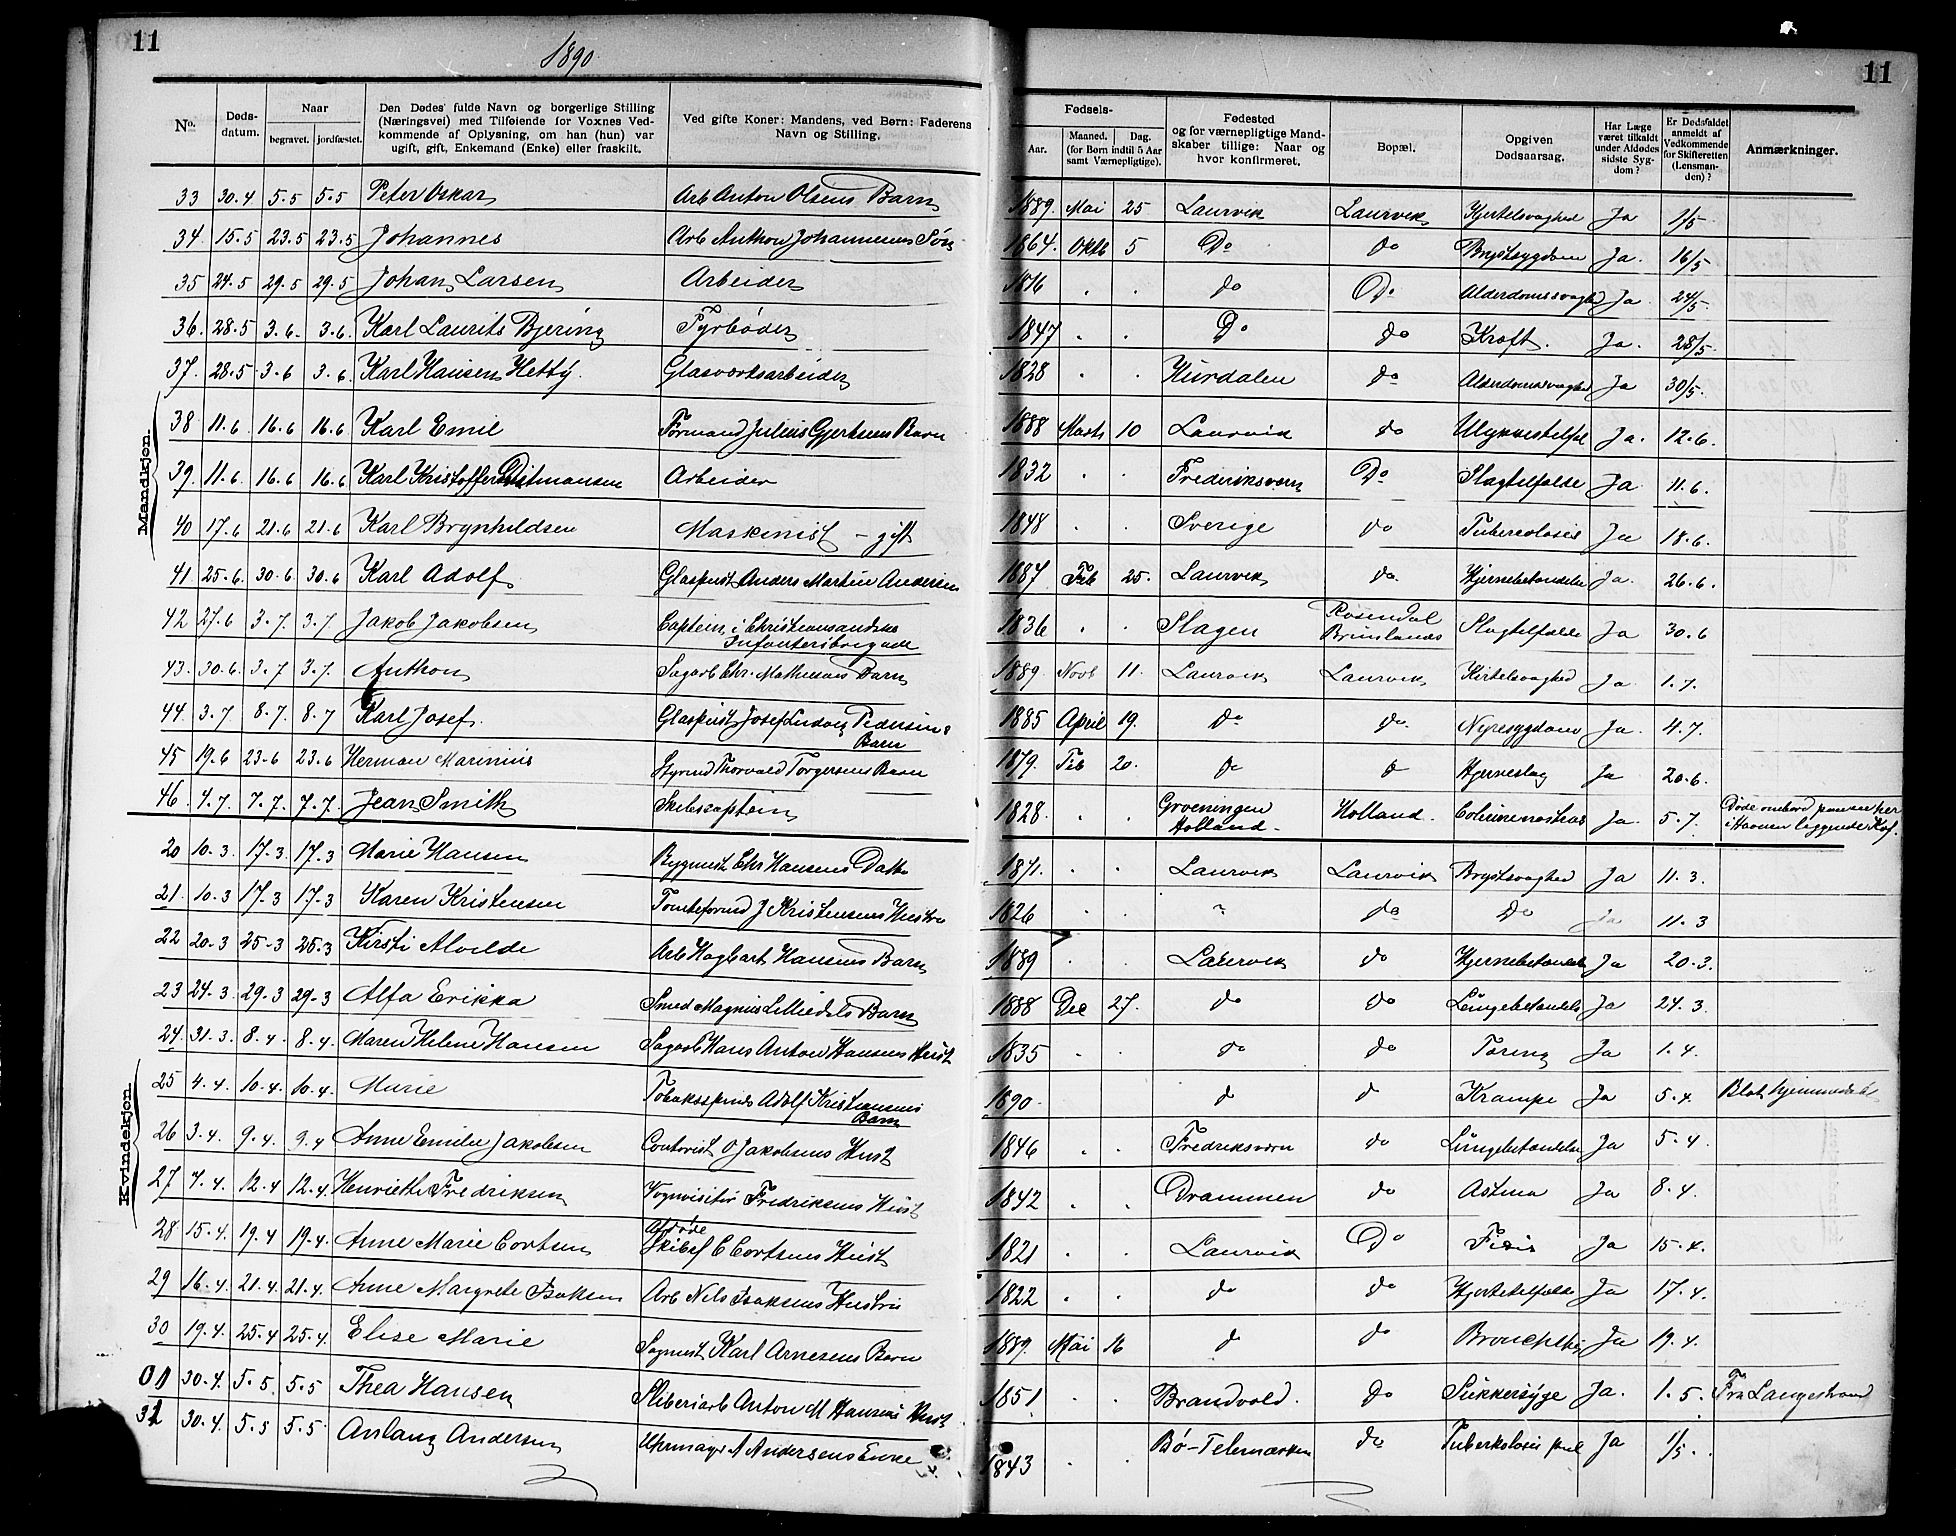 11
1890
11
No.
Døds-datum.
Naar
begravet. jordfæstet.
Den Dødes' fulde Navn og borgerlige Stilling (Næringsvei) med Tilføiende for Voxnes Vedkommende af Oplysning, om han (hun) var ugift, gift, Enkemand (Enke) eller fraskilt.
Ved gifte Koner: Mandens, ved Børn: Faderens Navn og Stilling.
Fødsels-
Aar. Maaned. Dag.
(for Børn indtil 5 Aar samt Værnepligtige).
Fødested og for værnepligtige Mandskaber tillige: Naar og hvor konfirmeret.
Bopæl.
Opgiven Dødsaarsag.
Har Læge været tilkaldt under Afdødes sidste Sygdom?
Er Dødsfaldet anmeldt af Vedkommende for Skifteretten (Lensmanden)?
Anmærkninger.
Mandkjøn.
33 30.4 5.5 5.5 Peter Oskar Arb Anton Olsens Barn 1889. Mai 25 Laurvik Laurvik Hjertesvaghed Ja 1/5
34. 15.5 23.5 23.5 Johannes Arb Anthon Johannesens Søn 1864. Oktb 5 Do do Brystsygdom Ja. 16/5
35 24.5 29.5 29.5 Johan Larsen Arbeider 1816 . . do Do Alderdomssvaghed Ja 24/5.
36. 28.5 3.6. 3.6. Karl Laurits Bjering Fyrbøder 1847 . . Do do Kræft. Ja. 28/5.
37. 28.5 3.6 3.6. Karl Hansen Hetty. Glasværksarbeider 1828 . . Hurdalen do Alderdomssvaghed Ja 30/5.
38 11.6 16.6 16.6 Karl Emil Formand Julius Gjertsens Barn 1888 Marts 10 Laurvik do Ulykkestilfæl Ja. 12.6.
39. 11.6. 16.6 16.6 Karl Kristoffer Ditmansen Arbeider 1832 . . Frederiksværn Do Slagtilfælde Ja 11.6.
40 17.6 21.6 21.6 Karl Brynhildsen Maskinist - gift 1848 . . Sverige do Tuberculosis Ja 18.6.
41. 25.6. 30.6 30.6 Karl Adolf Glaspust Anders Martin Andersen 1887 Feb 25. Laurvik do. Hjernebetændelse Ja. 26.6.
42 27.6 3.7. 3.7 Jakob Jakobsen Captein i Christiansandske Infanteribrigade 1836 . . Slagen Rosendal Brunlanes Slagtilfælde Ja 30.6
43. 30.6. 3.7 3.7. Anthon Sagarb Chr. Mathisens Barn 1889. Novb 11. Laurvik Laurvik Kirtelsvaghed Ja. 1.7.
44. 3.7 8.7. 8.7 Karl Josef. Glaspust Josef Ludvig Pedersens Barn 1885 April 19. do do. Nyresygdom Ja. 4.7.
45 19.6 23.6 23.6 Herman Marinius Styrmd Thorvald Torgersens Barn 1879. Feb 20. do d Hjerneslag Ja 20.6.
46. 4.7. 7.7. 7.7. Jean Smith Skibscaptein 1828. . . Groeningen Holland. Holland. Ja. 5.7. Døde ombord paa sin her i Havnen liggende
Kvindekjøn.
20 10.3 17.3 17.3 Marie Hansen Bygmest Chr Hansens Datt 1871. . . Laurvik Laurvik Brystsvaghed Ja 11.3.
21. 10.3 17.3 17.3 Karen Kristensen Tomteformd J Kristensens Hustru 1826 . . " do Do Ja 11.3
22 20.3 25.3 25.3 Kirsti Alvilde Arb Hagbart Hansens Barn 1889 . . Laurvik do Hjernebetændels Ja 20.3.
23 24.3. 29.3 29.3 Alfa Erikka Smed Magnus Lilliedals Barn 1888 Dec 27. do do Lungebetændels Ja 24.3
24. 31.3. 8.4. 8.4. Maren Helene Hansen Sagarb Hans Anton Hansens Hust 1835 . . do do Tæring Ja 1.4.
25 4.4. 10.4. 10.4. Marie Tobakssspinder Adolf Kristiansens Barn 1890. d d Krampe Ja 5.4. Blot hjemmedøbt
26 3.4. 9.4. 9.4 Anne Emilie Jakobsen Contorist O Jakobsens Hust 1846 . . Fredriksværn do Lungebetændelse Ja 5.4.
27 7.4. 12.4 12.4. Henriette Fredriksen Vognvisitør Fredriksens Hust 1842 . . Drammen do Astma Ja 8.4.
28 15.4. 19.4 19.4. Anne Marie Cortsen Afdøde Skibsf C Cortsens Hust 1821 . . Laurvik Do Ja 15.4.
29 16.4. 21.4. 21.4. Anne Margrete Isaksen Arb Nils Isaksens Hustru 1822 . . do do Hjertetilfælde Ja 17.4.
30 19.4. 25.4 25.4. Elise Marie Sagmest Karl Arnesens Barn 1889. Mai 16 d do Ja 19.4.
30.4. 5.5. 5.5 Thea Hansen Sliberiarb Anton M Hansens Hust 1851 . . Brandvold. do Sukkersyge Ja. 1.5. Fra Langestrand
32 30.4. 5.5 5.5. Anlaug Andersen Uhrmager A Andersens Enke 1843 . . Bø-Telemarken do Tuberkulosis pul Ja 1/5.